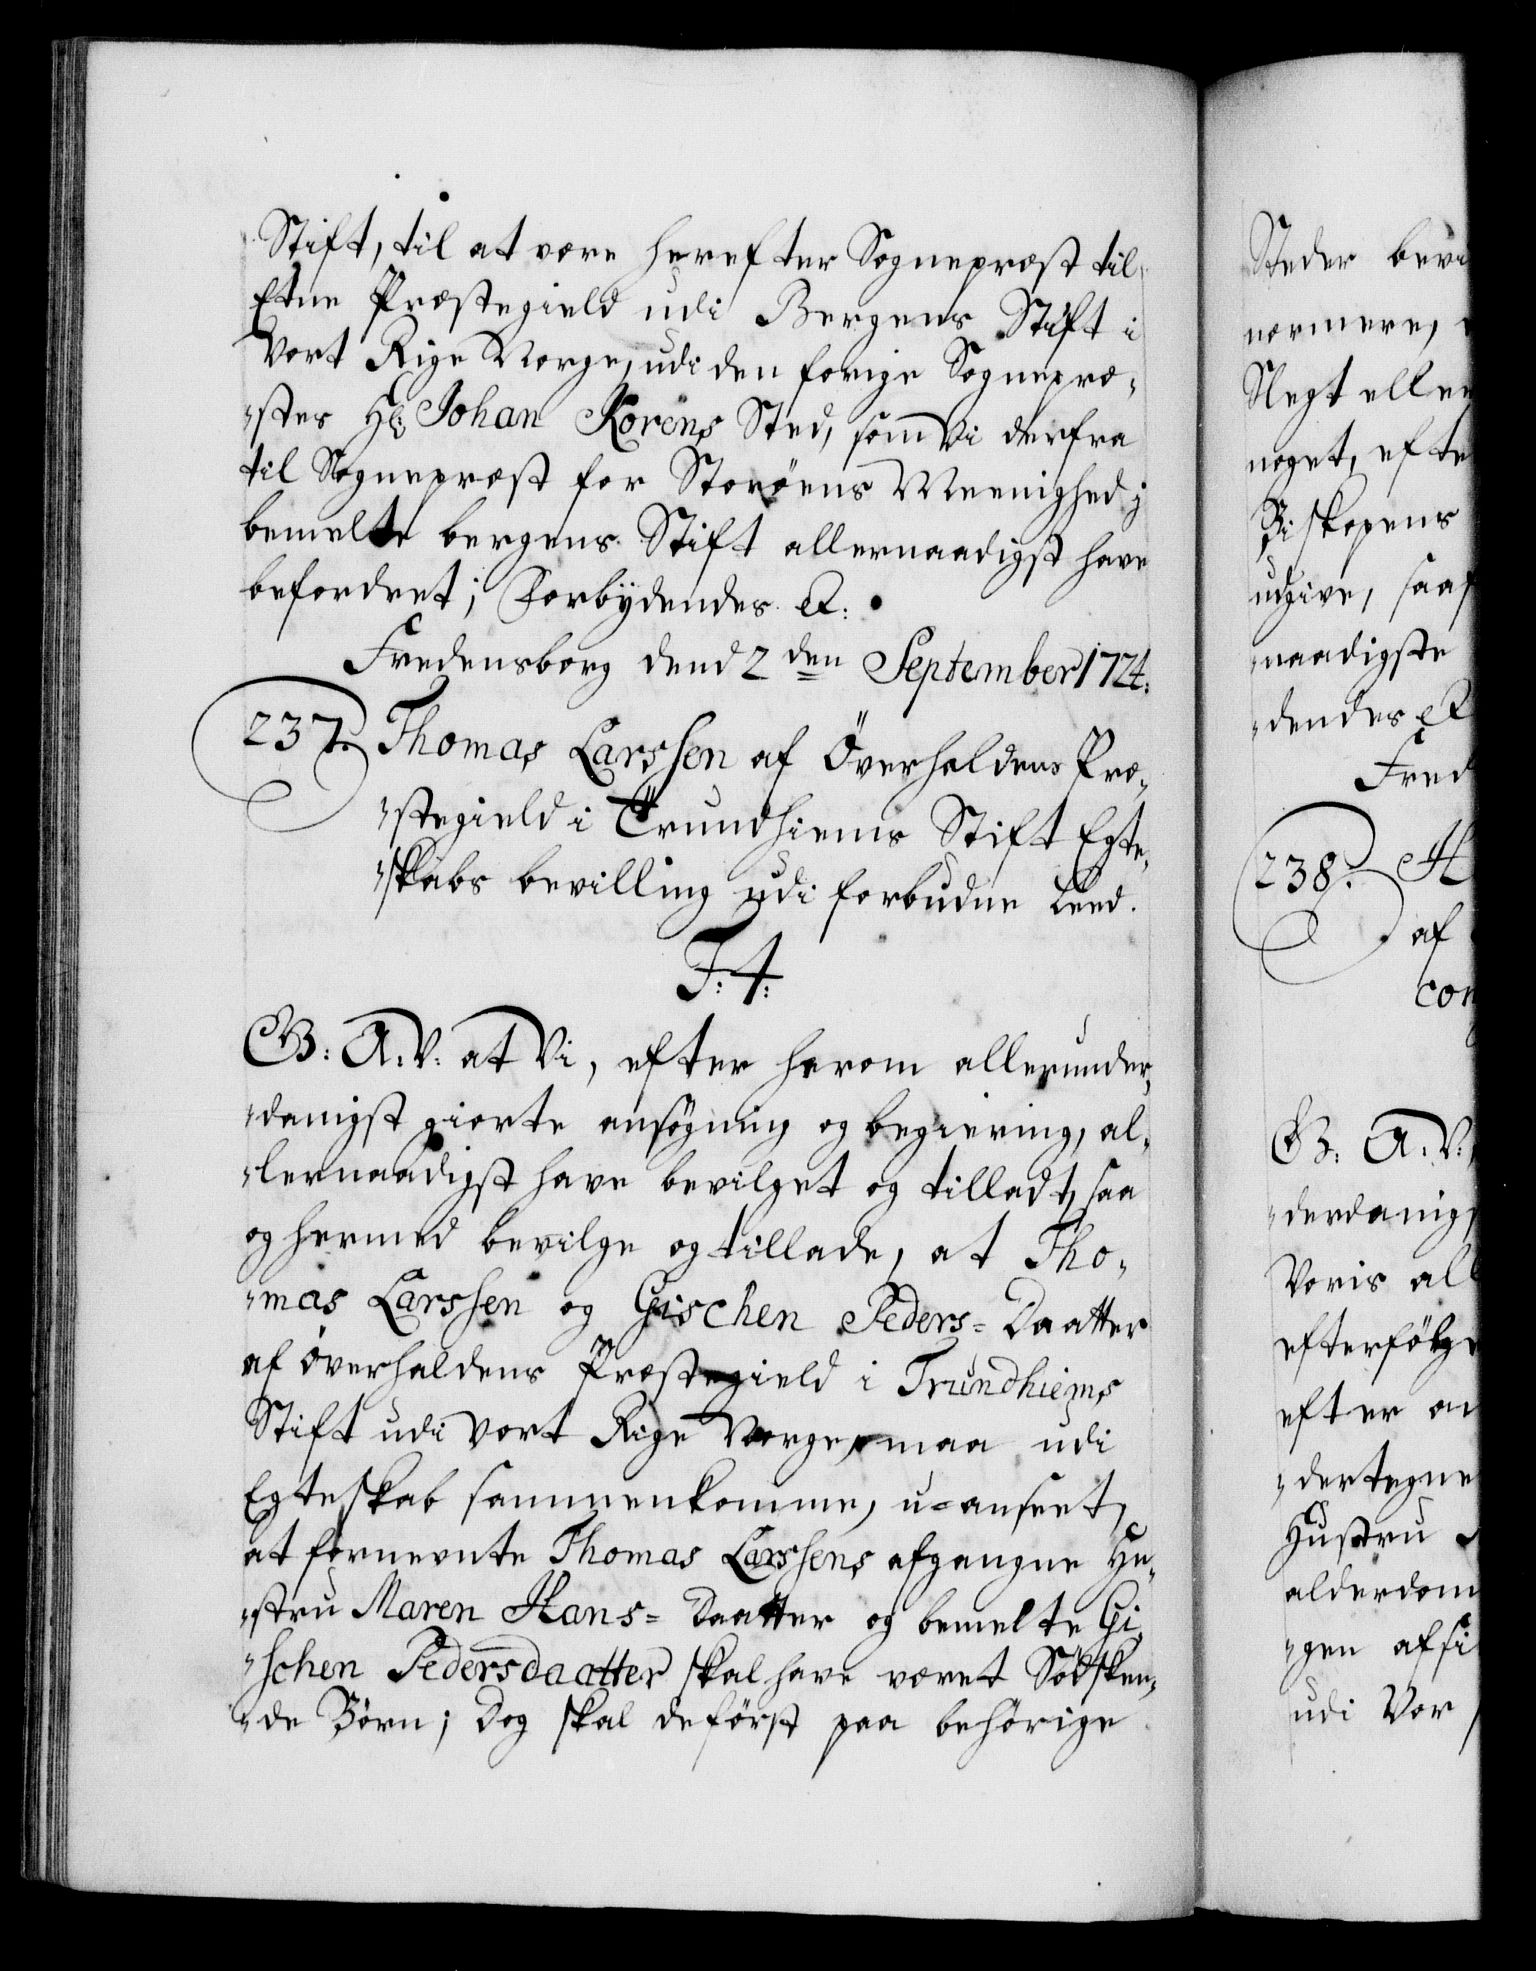 Stift, til at være herefter Sognepræst til
Etne Præstegield udi Bergens Stift i
Vort Rige Norge, udi den forige Sognepræ-
-stes Hr. Johan Korens Sted, som Vi derfra
til Sognepræst for Storöens Meenighed j
bemelte bergens Stift allernaadigst have
befordret; Forbydendes &:
Fredensborg dend 2den September 1724.
237. Thomas Larssen af Överhaldens Præ-
-stegield i Trundhiems Stift Egte-
-skabs bevilling udi forbudne Leed.
F: 4:
G: A: V: at Vi, efter herom allerunder-
-danigst giorte ansøgning og begiering, al-
-lernaadigst have bevilget og tilladt, saa
og hermed bevilge og tillade, at Tho-
-mas Larssen og Gischen Peders= Daatter
af Överhaldens Præstegield i Trundhiems
Stift udi Vort Rige Norge, maa udi
Egteskab sammenkomme, u=anseet,
at fornevnte Thomas Larssens afgangne Hu-
-stru Maren Hans= Daatter og bemelte Gi-
-schen Pedersdaatter skal have været Södsken-
-de Börn; Dog skal de först paa behörige
Steder bevi
nærmere,
Slegt eller
noget, efte
Biskopens
udgive, saaf
-naadigste
-dendes &
Fred
238. H
af
con
G: A: V:
-derdanigs
Voris all
efterfölge
efter an
-dertegne
Hustru
alderdom
-gen afsi
udi Vor